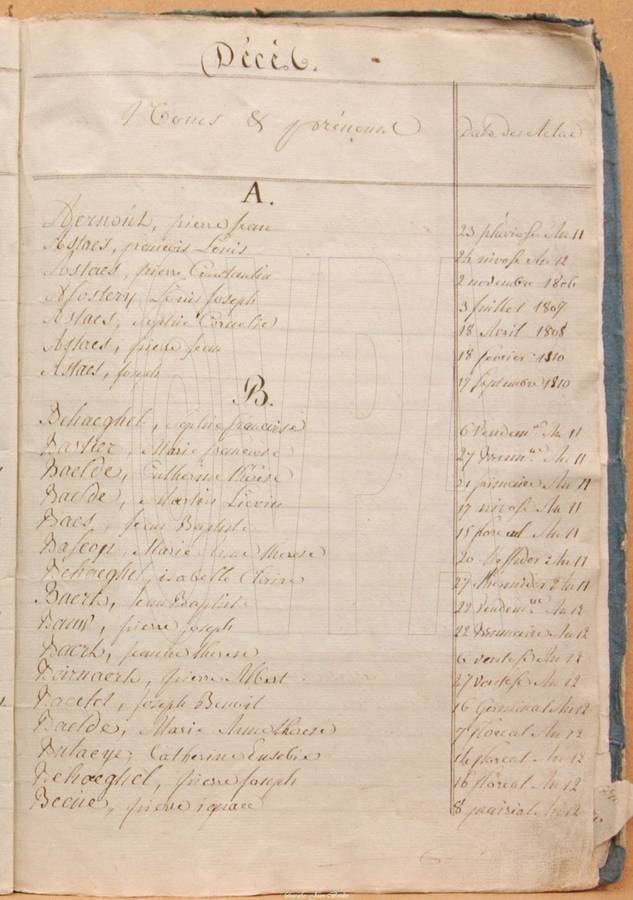 Décès.
Noms & prénoms Date des Actes
A.
Aernout, pierre jean 23 pluviose An 11
Astaes, francois Louis 24 nivose An 12
Astaes, pierre Constantin 2 novembre 1806
Louis Joseph 3 Juillet 1807
Astaes, Sophie Cornelie 18 Avril 1808
Astaes, pierre jean 18 fevrier 1810
Astaes, joseph 17 Septembre 1810
B.
Behaeghel, Sophie françoise 6 Vendem.re An 11
Marie françoise 27 An 11
Baelde, Catherine thérèse 21 frimaire An 11
Baelde, Martin Lievin 17 nivose An 11
Baes, jean Baptiste 15 floreal An 11
Marie Anne therese 20 Messidor An 11
Behaeghel, isabelle Claire 27 thermidor An 11
Baert, jean Baptiste 29 vendem.re An 12
pierre joseph 22 Brumaire An 12
Baert, jeanne therese 6 ventose An 12
Boirnaert, pierre Albert 27 ventose An 12
joseph Benoit 16 Germinal An 12
Baelde, Marie Anne thérèse 7 floreal An 12
Catherine Eusebie 14 floreal An 12
Behaeghel, pierre joseph 16 floreal An 12
Becue, pierre ignace 8 prairial An 12